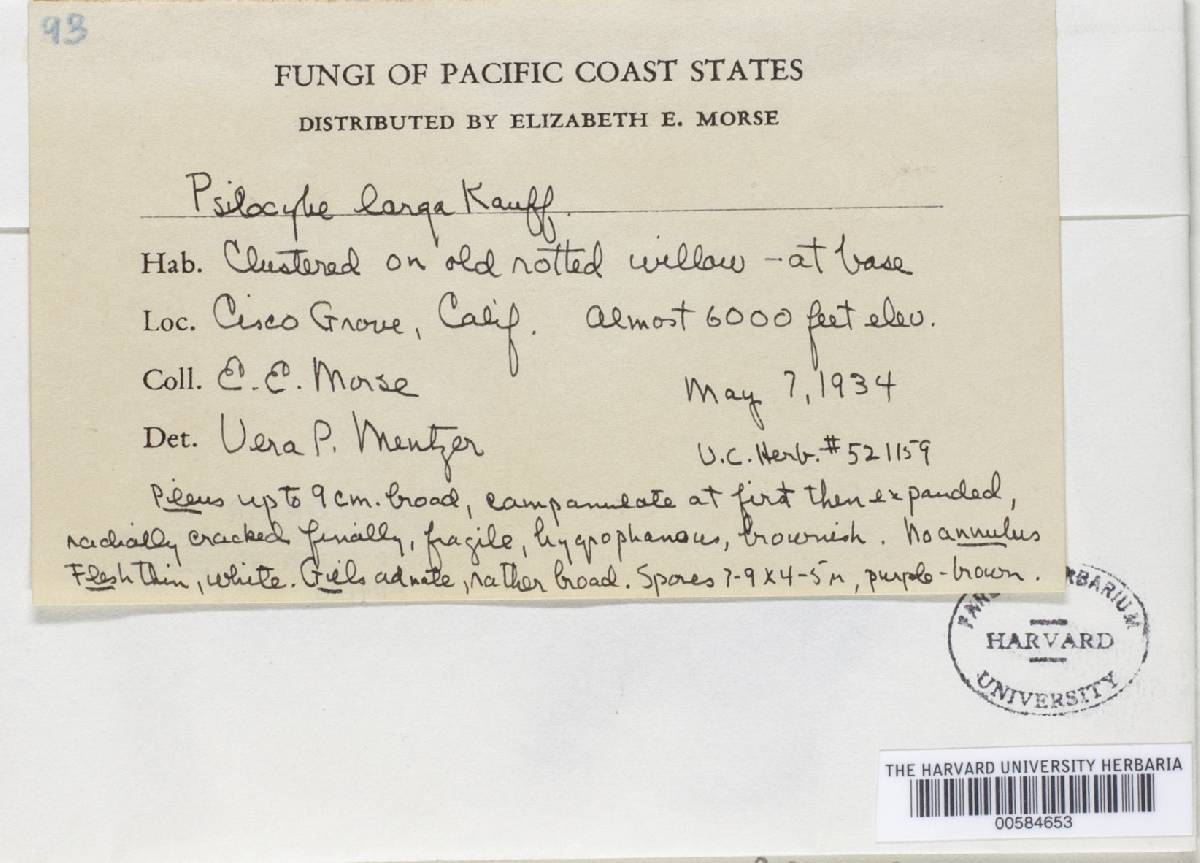 93
FUNGI OF PACIFIC COAST STATES
DISTRIBUTED BY ELIZABETH E. MORSE
Psilocybe larga Kauff.
Hab. Clustered on old rotted willow - at base
Loc. Cisco Grove, Calif. Almost 6000 feet elev.
Coll. E. E. Morse May 7, 1934
Det. Vera P. Mentzer U.C. Herb. #521159
Pileus up to 9 cm. broad, campanulate at first then expanded,
radially cracked finally, fragile, hygrophanous, brownish. No annulus
Flesh thin, white. Gills adnate, rather broad. Spores 7-9 x 4-5 µ, purple-brown.
HARVARD
UNIVERSITY
THE HARVARD UNIVERSITY HERBARIA
00584653